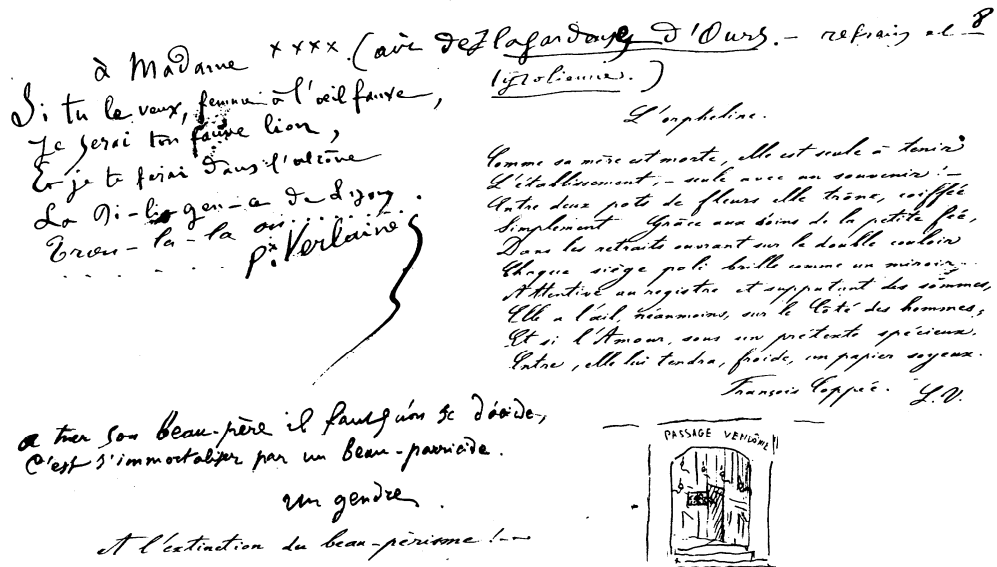 8
à Madame xxxx. (air d'Ours. – refrain et
Tyrolienne.)
Si tu le veux, femme à l'œil fauve,
Je serai ton fauve lion,
Et je te ferai dans l'alcôve
La Di-li-gen-ce de Lyon
Trou-la-la ou.......
P. Verlaine
L'orpheline.
Comme sa mère est morte, elle est seule à tenir
L'établissement, – seule avec un souvenir !–
Entre deux pots de fleurs elle trône, coiffée
Simplement Grâce aux soins de la petite fée,
Dans les retraits ouvrant sur le double couloir
Chaque siège poli brille comme un miroir.
Attentive au registre et supputant des sommes,
Elle a l'œil, néanmoins, sur le Côté des hommes;
Et si l'Amour, sous un prétexte spécieux
Entre, elle lui tendra, froide, un papier soyeux.
François Coppée. L.V.
A tuer son beau-père il faut qu'on se décide,
C'est s'immortaliser par un beau-parricide.
un gendre.
Et l'extinction du beau-périsme !--
PASSAGE VENDÔME